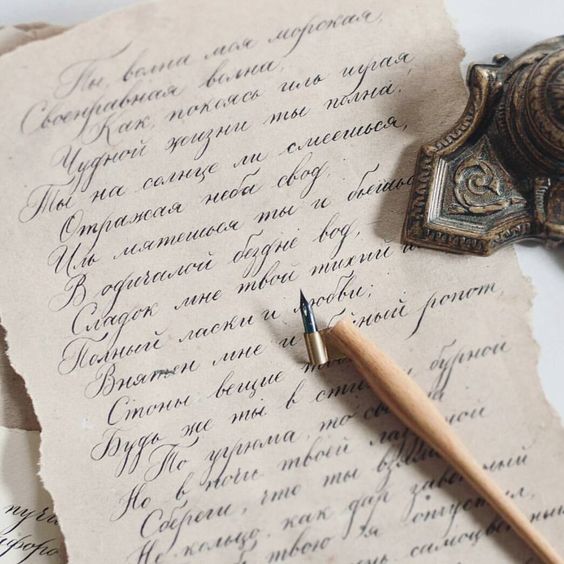 Ты, волна моя морская,
Своенравная волна,
Как, покоясь иль играя,
Чудной жизни ты полна!
Ты на солнце ли смеешься,
Отражая неба свод,
Иль мятешься ты и бьешьс
В одичалой бездне вод,
Сладок мне твой тихий
Полный ласки и любви;
Внятен мне и ный ропот,
Стоны вещие
Будь же ты в сти бурной
То угрюма, то св
Но в ночи твоей ла ной
Сбереги, что ты вз
Не кольцо, как дар заветный
твою я опустил,
ень самоцветный